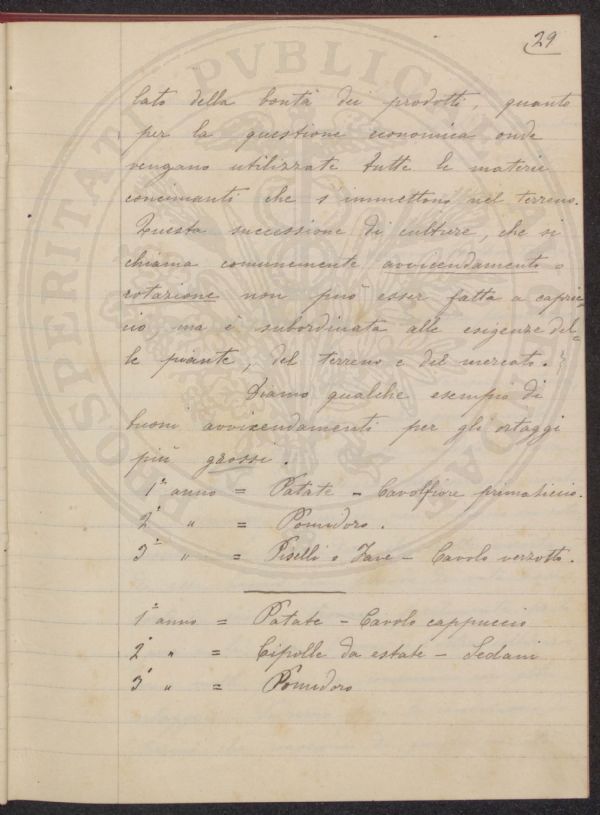 29
lato della bontà dei prodotti, quanto
per la questione economica onde
vengano utilizzate tutte le materie
concimanti che s'immettono nel terreno.
Questa successione di culture, che si
chiama comunemente avvicendamento o
rotazione non può esser fatta a capric=
cio, ma è subordinata alle esigenze del=
le piante, del terreno e del mercato.
Diamo qualche esempio di
buoni avvicendamenti per gli ortaggi
più grossi.
1° anno = Patate - Cavolfiore primaticcio.
2° " = Pomidoro.
3° " = Piselli o Fave - Cavolo verzotto.
1° anno = Patate - Cavolo cappuccio
2° " = Cipolle da estate - Sedani
3° " = Pomidoro